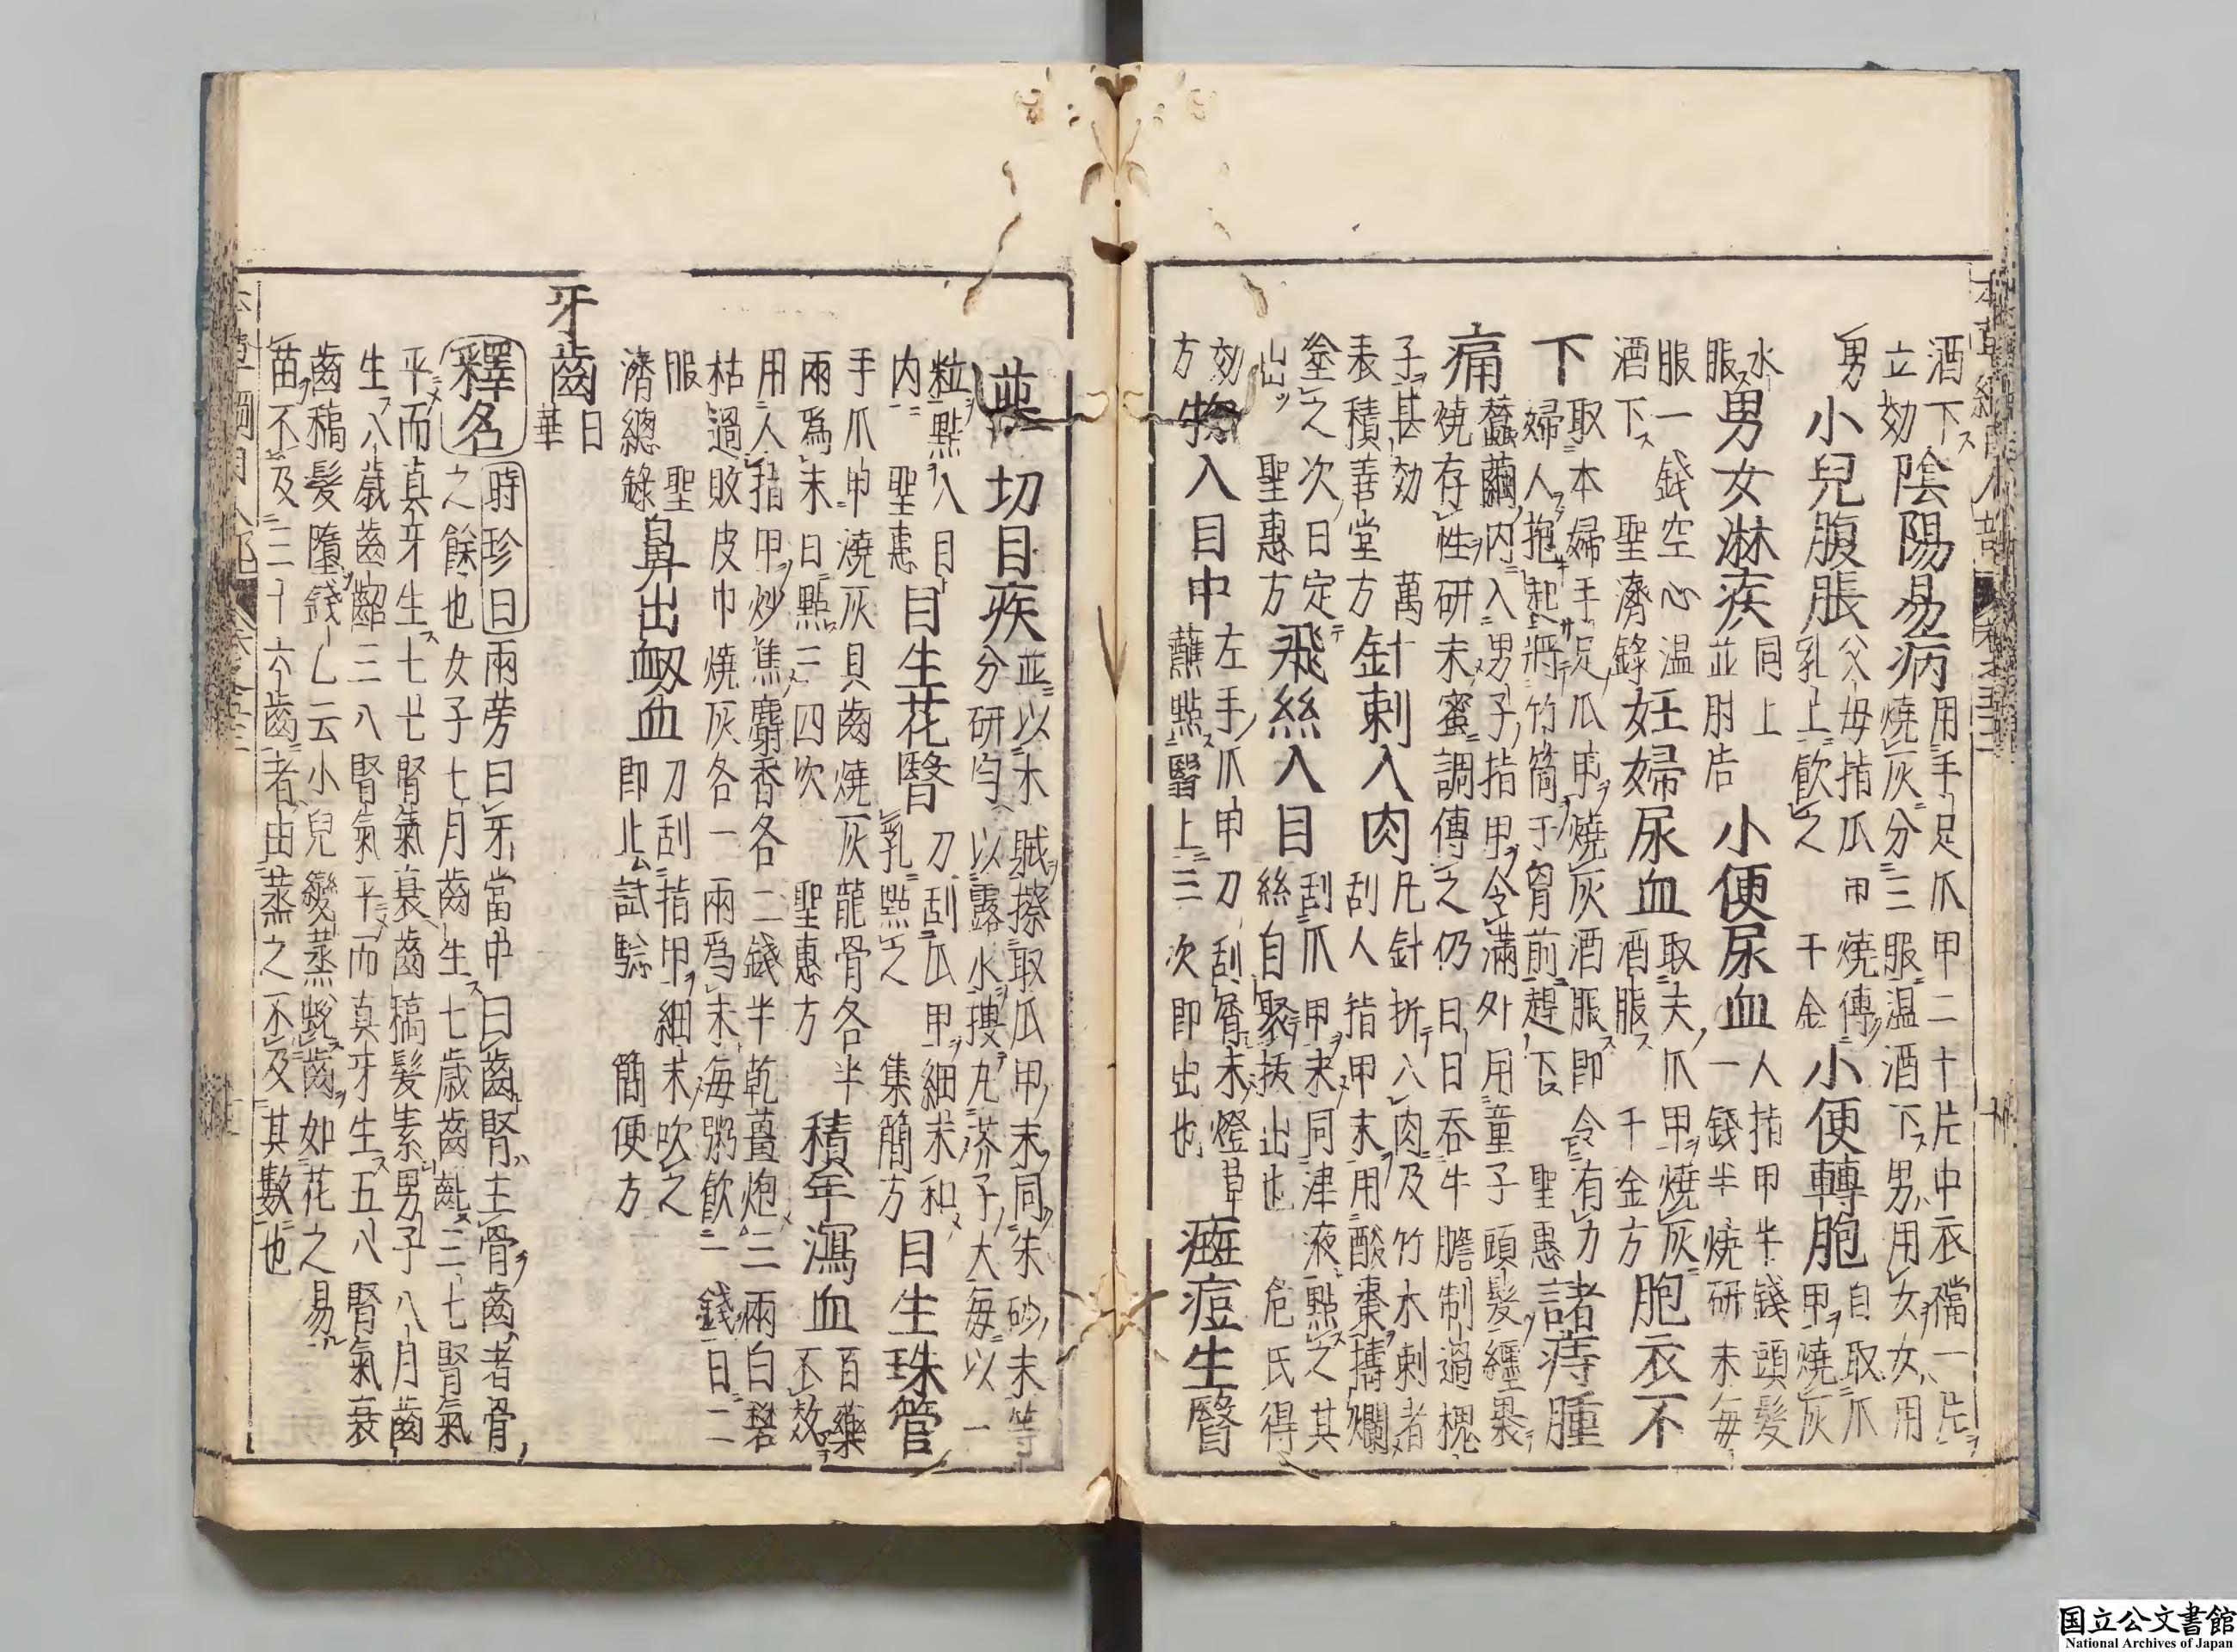 酒下立効陰陽易病用手足爪甲二十片中衣襠一片燒灰分三服温酒下男用女女用
男小兒腹脹父母指爪甲燒傅乳上飲之千金小便轉胞自取爪甲燒灰
水服男女淋疾同上並肘后小便尿血人指甲半錢頭髮一錢半燒研末每
服一錢空心温酒下聖濟錄妊婦尿血取夫爪甲燒灰酒服千金方胞衣不
下取本婦手足爪甲燒灰酒服即令有力婦人抱起將竹筒于胷前趕下聖惠諸痔腫
痛蠶繭内入男子指甲令滿外用童子頭髮纏裹燒存性研末蜜調傅之仍日日吞牛膽制過槐
子甚効萬表積善堂方針刺入肉凡針折入肉及竹木刺者刮人指甲末用酸棗擣爛
塗之次日定出聖惠方飛絲入目刮爪甲末同津液點之其絲自聚拔出也危氏得
効方物入目中左手爪甲刀刮屑末燈草蘸點翳上三次即出也癍痘生翳
切目疾並以木賊擦取爪甲末同朱砂末等分研勻以露水搜丸芥子大每以一
粒點入目内聖惠目生花翳刀刮爪甲細末和乳點之集簡方目生珠管
手爪甲燒灰貝齒燒灰龍骨各半兩爲末日點三四吹聖惠方積年瀉血百藥不效
用人指甲炒焦麝香各二錢半乾薑炮三兩白礬枯過敗皮巾燒灰各一兩爲末每粥飲一錢日二
服聖濟總錄鼻出衂血刀刮指甲細末吹之即止試驗簡便方
牙齒日華
釋名時珍曰兩旁曰牙當中曰齒腎主骨齒者骨之餘也女子七月齒生七歲齒齔三七腎氣
平而真牙生七七腎氣衰齒稿髮素男子八月齒
生八歲齒齠三八腎氣平而真牙生五八腎氣衰
齒稿髮墮錢乙云小兒變蒸蛻齒如花之易
苗不及三十六齒者由蒸之不及其數也
国立公文書館
National Archives of Japan